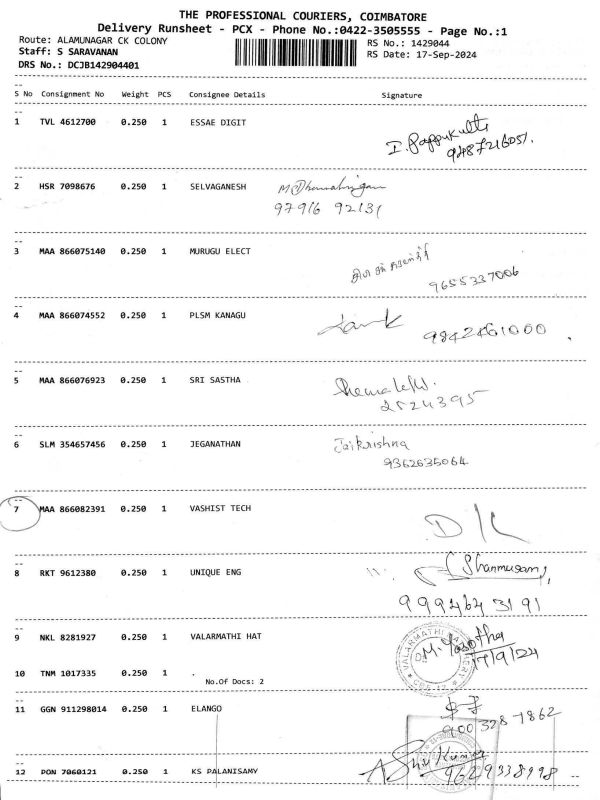 THE PROFESSIONAL COURIERS, COIMBATORE
Delivery Runsheet - PCX - Phone No.:0422-3505555 - Page No.:1
Route: ALAMUNAGAR CK COLONY
RS No.: 1429044
Staff: S SARAVANAN
RS Date: 17-Sep-2024
DRS No.: DCJB142904401
S No Consignment No Weight PCS Consignee Details Signature
1 TVL 4612700 0.250 1 ESSAE DIGIT
2 HSR 7098676 0.250 1 SELVAGANESH
97916 92131
3 MAA 866075140 0.250 1 MURUGU ELECT
9655337006
4 MAA 866074552 0.250 1 PLSM KANAGU
9842461000
5 MAA 866076923 0.250 1 SRI SASTHA
2524395
6 SLM 354657456 0.250 1 JEGANATHAN Jaikrishna
9362635064
7 MAA 866082391 0.250 1 VASHIST TECH
DK
8 RKT 9612380 0.250 1 UNIQUE ENG (Shanmugam)
9 NKL 8281927 0.250 1 VALARMATHI HAT
M. Yasotha
17/9/24
10 TNM 1017335 0.250 1 .
No.Of Docs: 2
11 GGN 911298014 0.250 1 ELANGO
900 328 7862
12 PON 7060121 0.250 1 KS PALANISAMY
9629338998